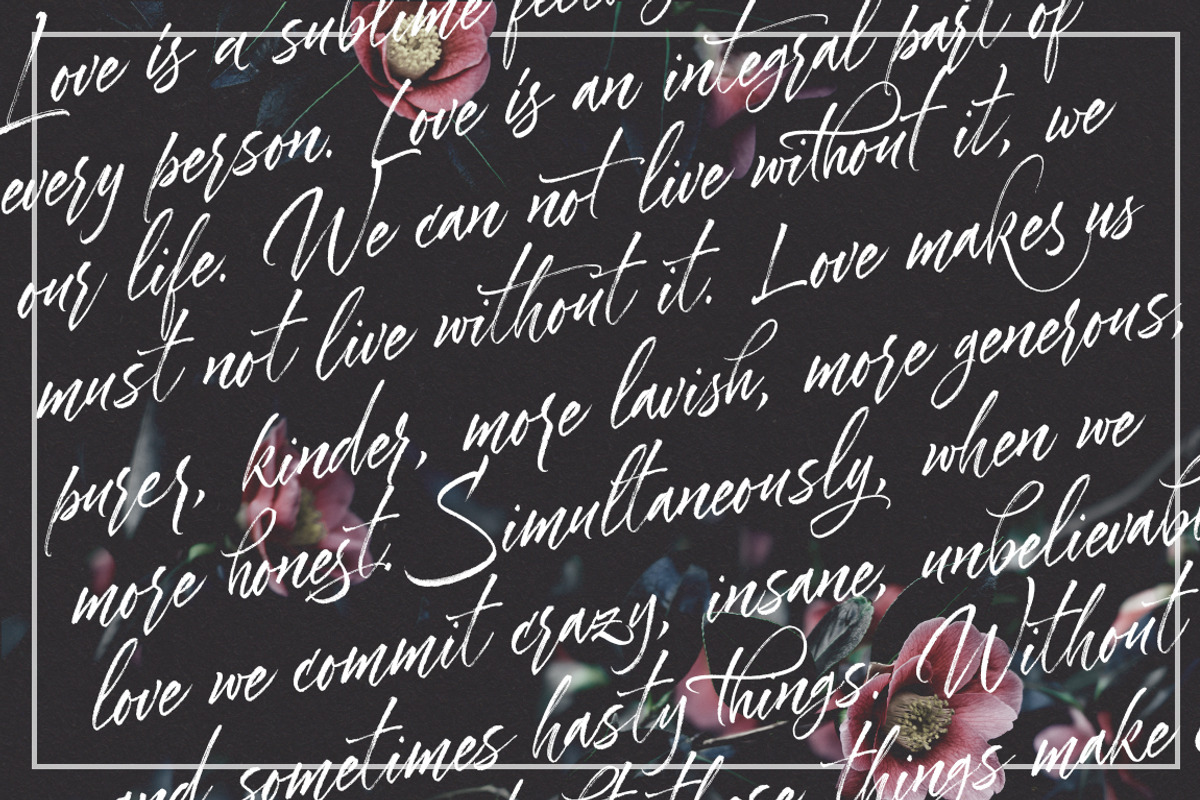 Love is a sublime feeling
every person. Love is an integral part of
our life. We can not live without it, we
must not live without it. Love makes us
purer, kinder, more lavish, more generous,
more honest. Simultaneously, when we
love we commit crazy, insane, unbelievab
and sometimes hasty things. Without
those things make